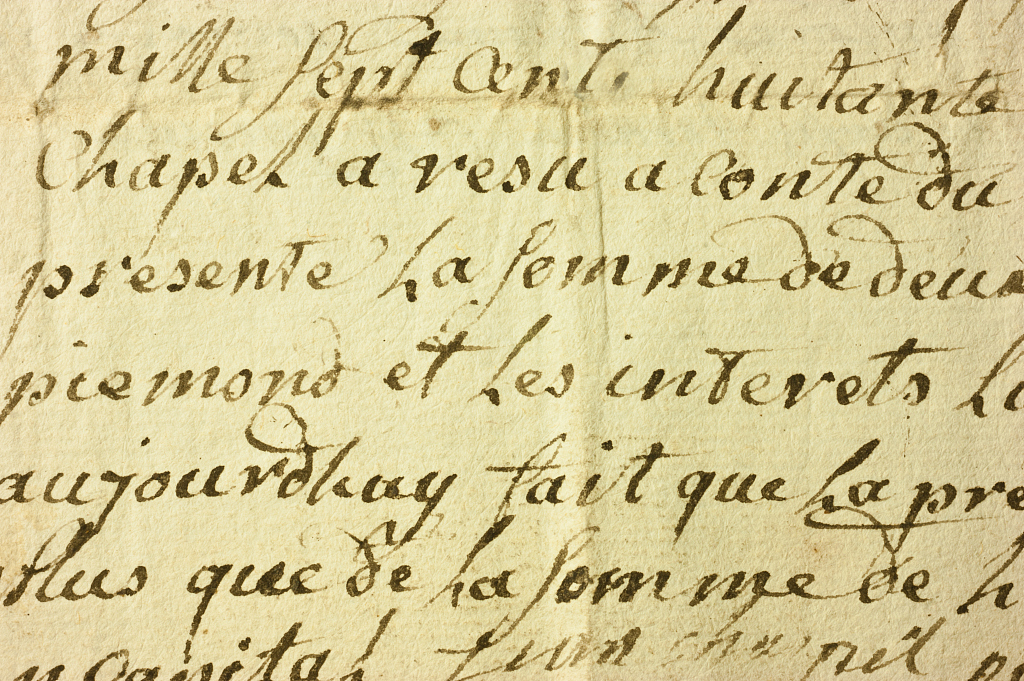 mille sept cent huitante
Chapel a resu a conte du
presente la somme de deux
piemond et les interets la
aujourdhuy fait que la pre
plus que de la somme de l
n capital